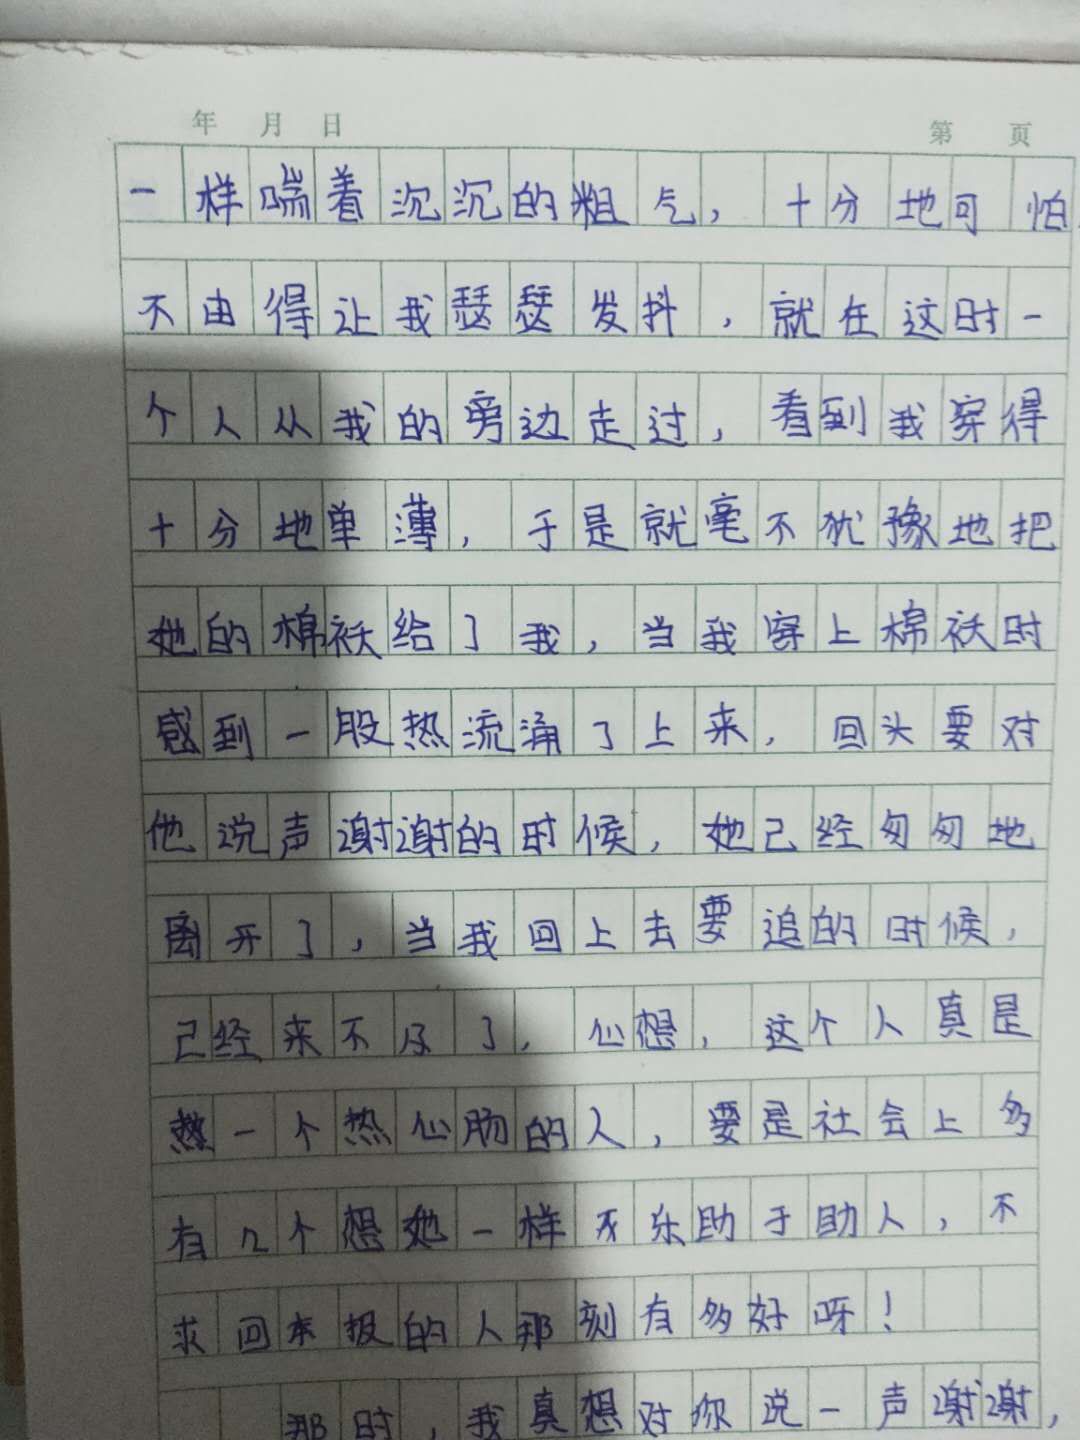 年 月 日 第 页
一样喘着沉沉的粗气，十分地可怕
不由得让我瑟瑟发抖，就在这时一
个人从我的旁边走过，看到我穿得
十分地单薄，于是就毫不犹豫地把
她的棉袄给了我，当我穿上棉袄时
感到一股热流涌了上来，回头要对
他说声谢谢的时候，她己经匆匆地
离开了，当我回上去要追的时候，
己经来不及了，心想，这个人真是
热一个热心肠的人，要是社会上多
有几个想她一样乐助于助人，不
求回报的人那刻有多好呀！
那时，我真想对你说一声谢谢，